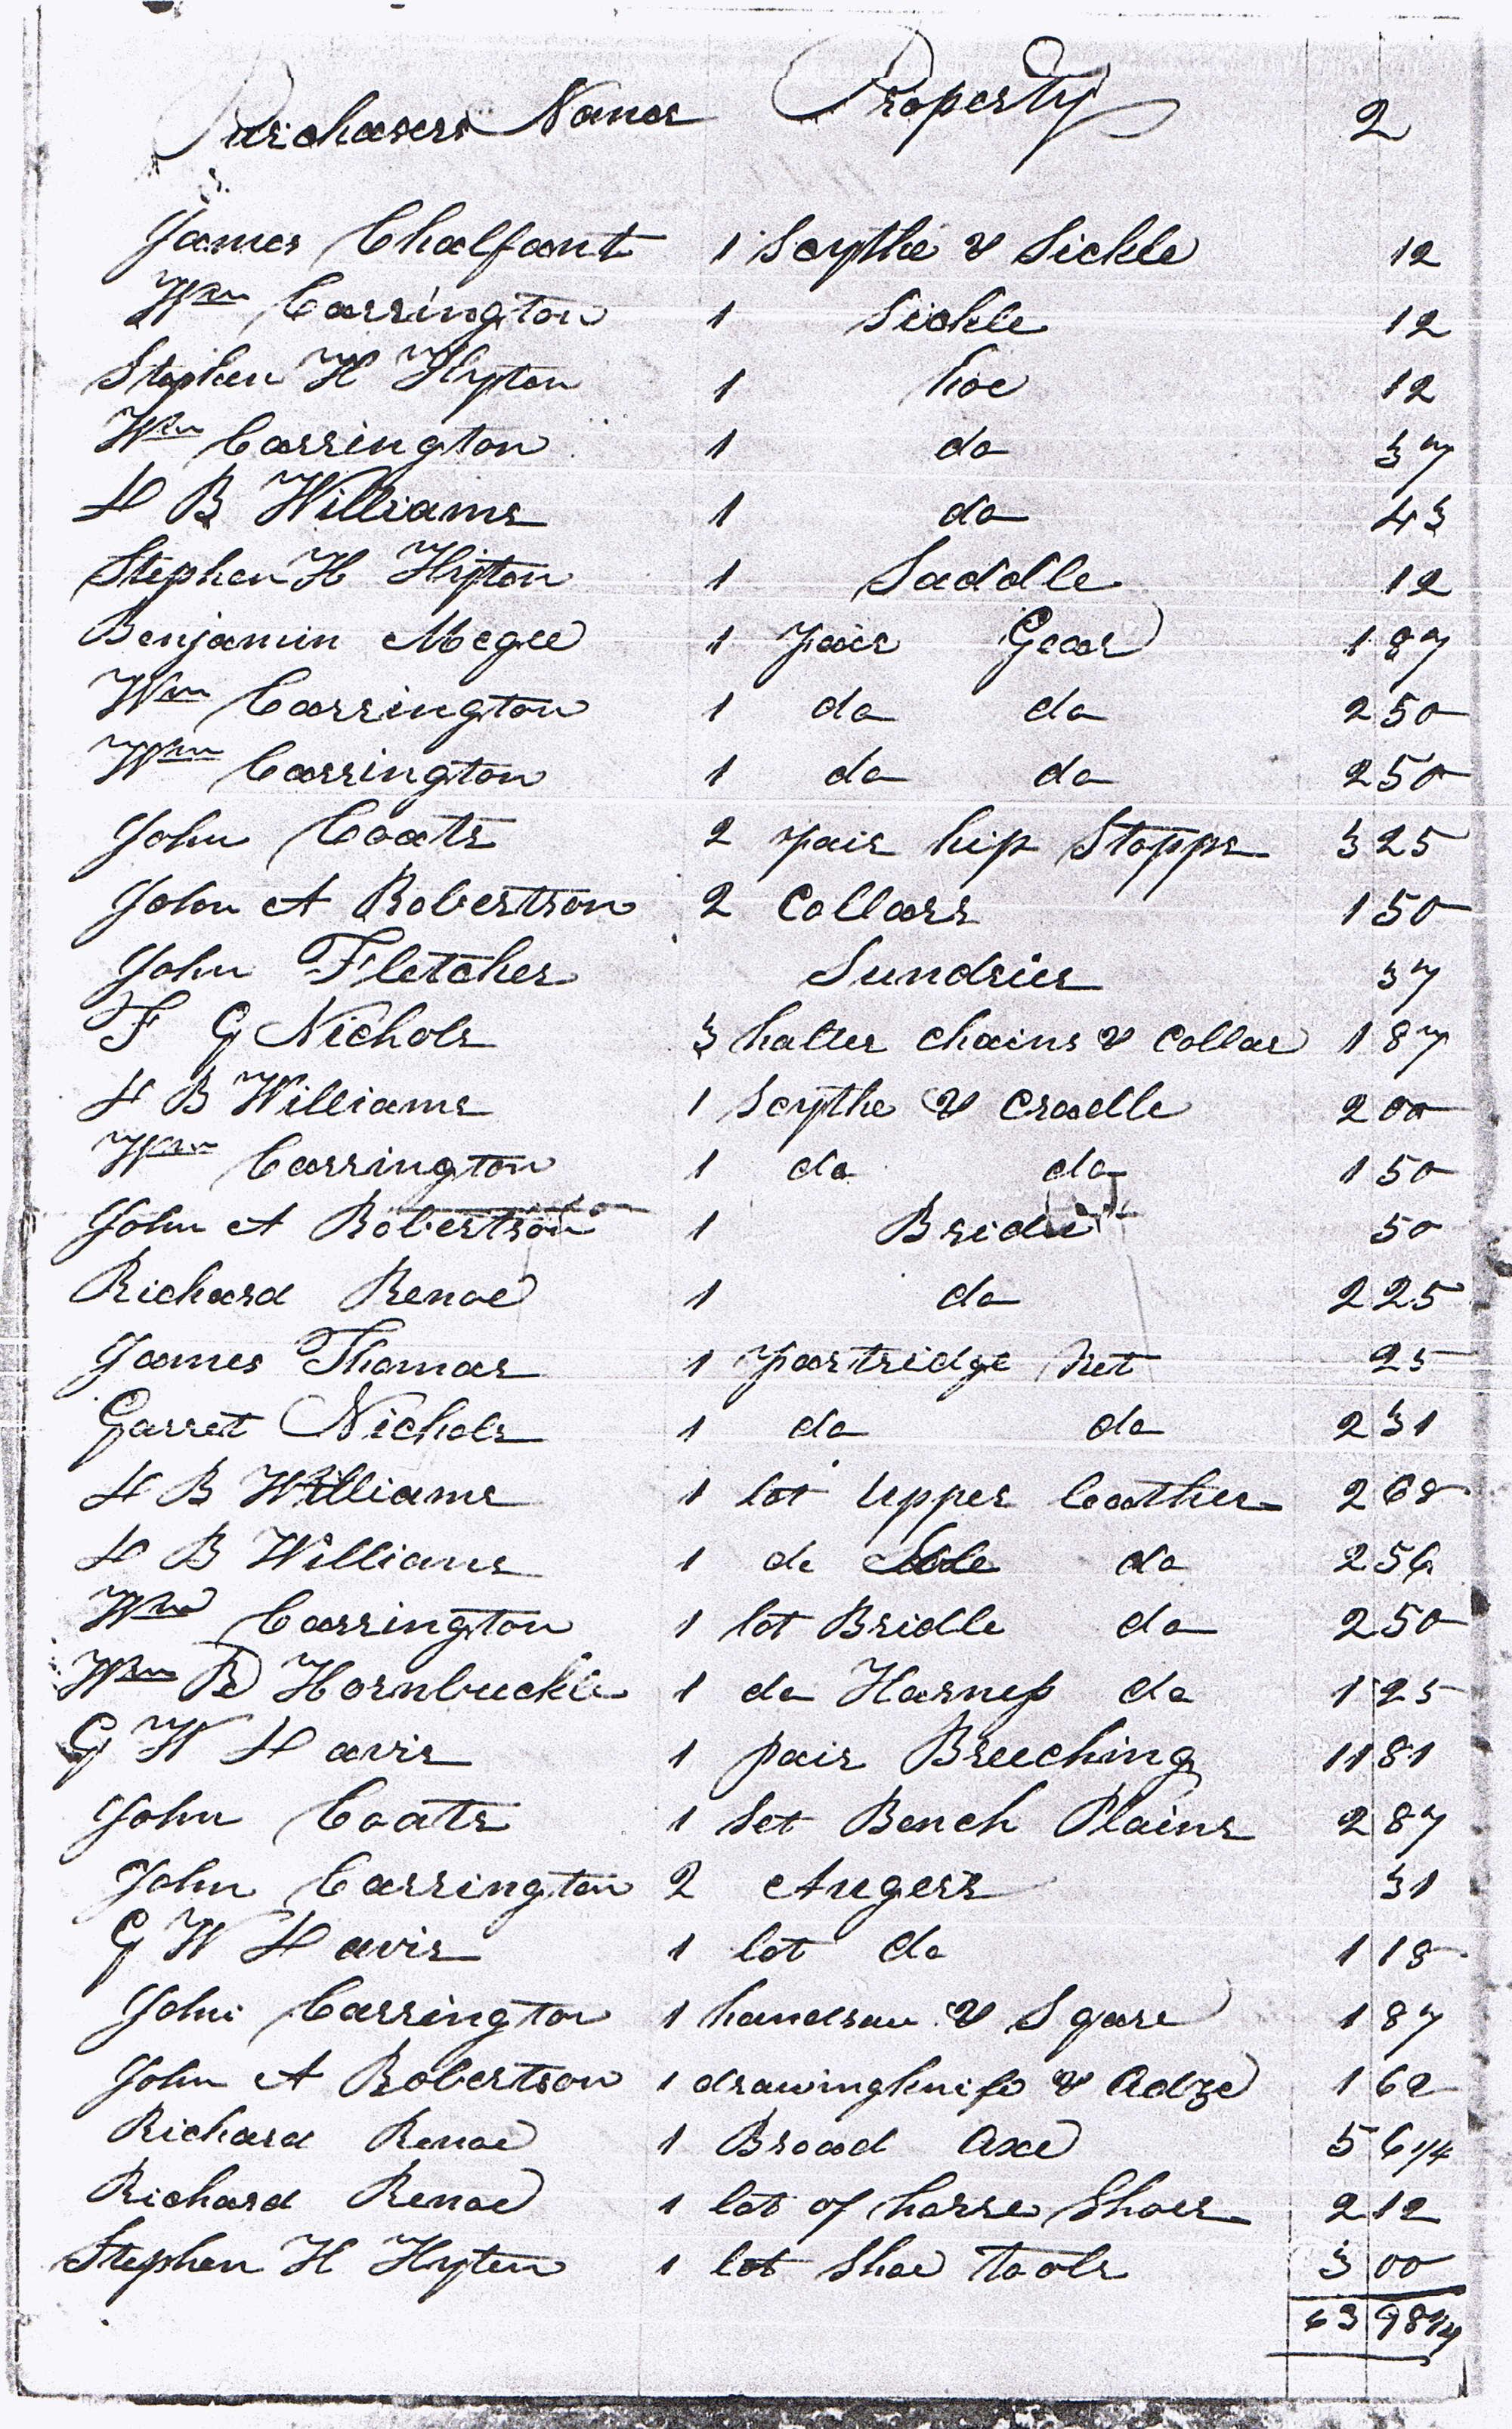 Purchasers Names Property 2
James Chalfant 1 Scythe & Sickle 12
Wm Carrington 1 Sickle 12
Stephen H Hyton 1 hoe 12
Wm Carrington 1 do 37
H B Williams 1 do 43
Stephen H Hyton 1 Saddle 12
Benjamin Megee 1 pair Gear 1 87
Wm Carrington 1 do do 2 50
Wm Carrington 1 do do 2 50
John Coats 2 pair hip Stopps 3 25
John A Robertson 2 Collars 1 50
John Fletcher Sundries 37
F G Nichols 3 halter chains & Collar 1 87
H B Williams 1 Scythe & Cradle 2 00
Wm Carrington 1 do do 1 50
John A Robertson 1 Bridle 50
Richard Renoe 1 do 2 25
James Thomas 1 partridge Net 25
Garret Nichols 1 do do 2 31
H B Williams 1 lot Upper leather 2 68
H B Williams 1 do Sole do 2 56
Wm Carrington 1 lot Bridle do 2 50
Wm B Hornbuckle 1 do Harness do 1 25
G W Havis 1 pair Breeching 11 81
John Coats 1 Set Bench Plains 2 87
John Carrington 2 Augers 31
G W Havis 1 lot do 1 18
John Carrington 1 handsaw & Sqare 1 87
John A Robertson 1 drawingknife & Adze 1 62
Richard Renoe 1 Broad Axe 5 6 1/4
Richard Renoe 1 lot of horse Shoes 2 12
Stephen H Hyten 1 lot Shoe Tools 3 00
63 98 1/4